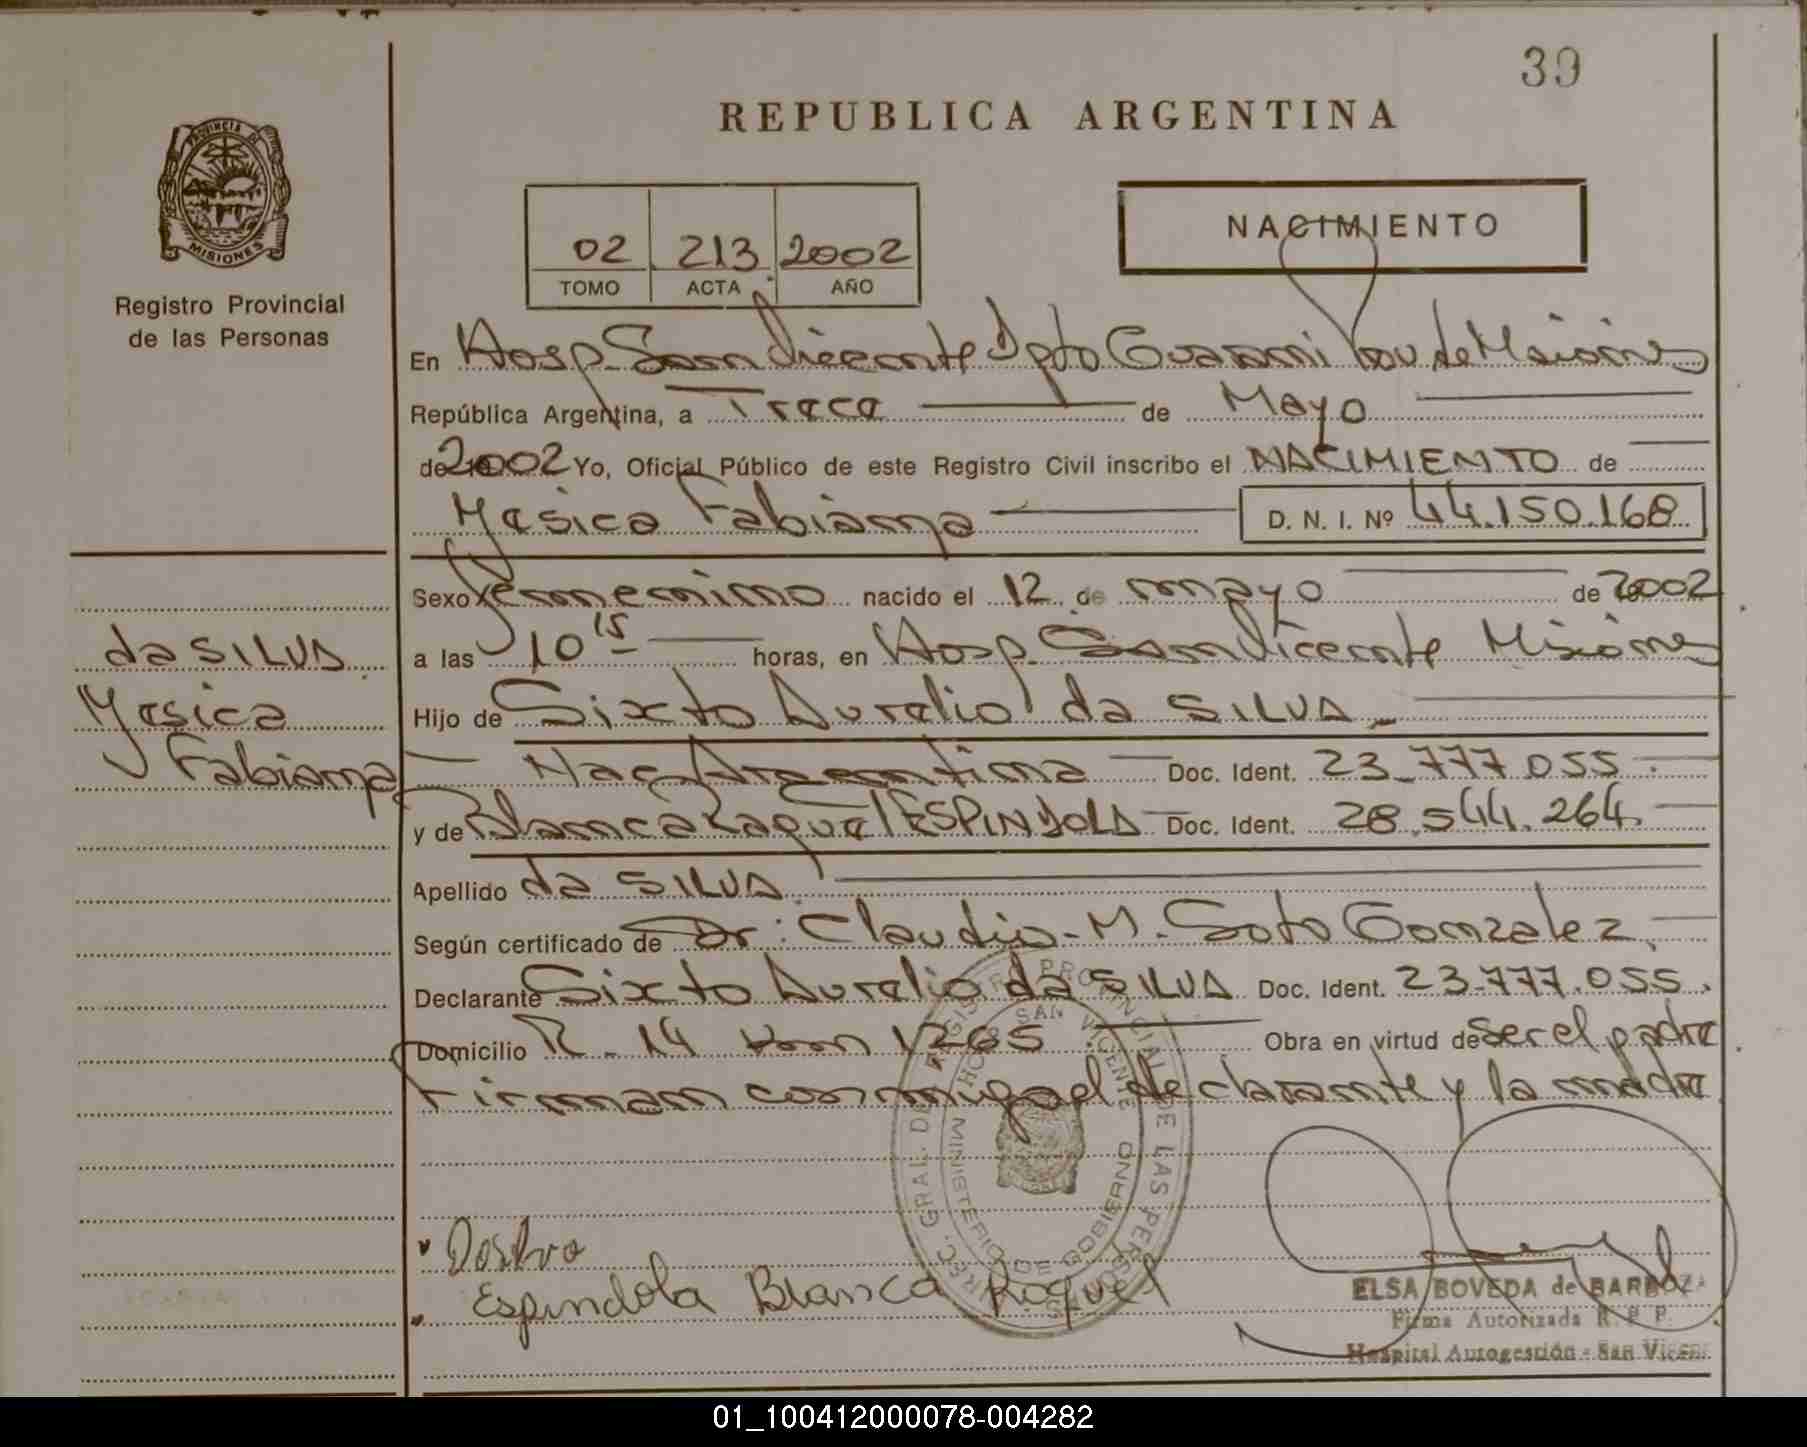 39
REPUBLICA ARGENTINA
PROVINCIA DE
MISIONES
Registro Provincial
de las Personas
NACIMIENTO
02 213 2002
TOMO ACTA AÑO
En Hosp. San Vicente Dpto Guarani Prov de Misiones
República Argentina, a Trece de Mayo
de 2002 Yo, Oficial Público de este Registro Civil inscribo el NACIMIENTO de
Yesica Fabiana D. N. I. Nº 44.150.168
Sexo Femenino nacido el 12 de mayo de 2002
a las 10 15 horas, en Hosp. San Vicente Misiones
Hijo de Sixto Aurelio da SILVA
Nac Argentina Doc. Ident. 23.777.055
y de Blanca Raquel ESPINDOLA Doc. Ident. 28.544.264
Apellido da SILVA
Según certificado de Dr. Claudio M. Soto Gonzalez
Declarante Sixto Aurelio da SILVA Doc. Ident. 23.777.055
Domicilio R. 14 Km 1265 Obra en virtud de ser el padre
Firman conmigo el declarante y la madre
da SILVA
Yesica
Fabiana
Espindola Blanca Raquel
ELSA BOVEDA de BARBOZA
Firma Autorizada R. P. P.
Hospital Autogestión - San Vicente
DIREC. GRAL. DEL REGISTRO PROVINCIAL DE LAS PERSONAS
HOSP SAN VICENTE
MINISTERIO DE GOBIERNO
01_100412000078-004282